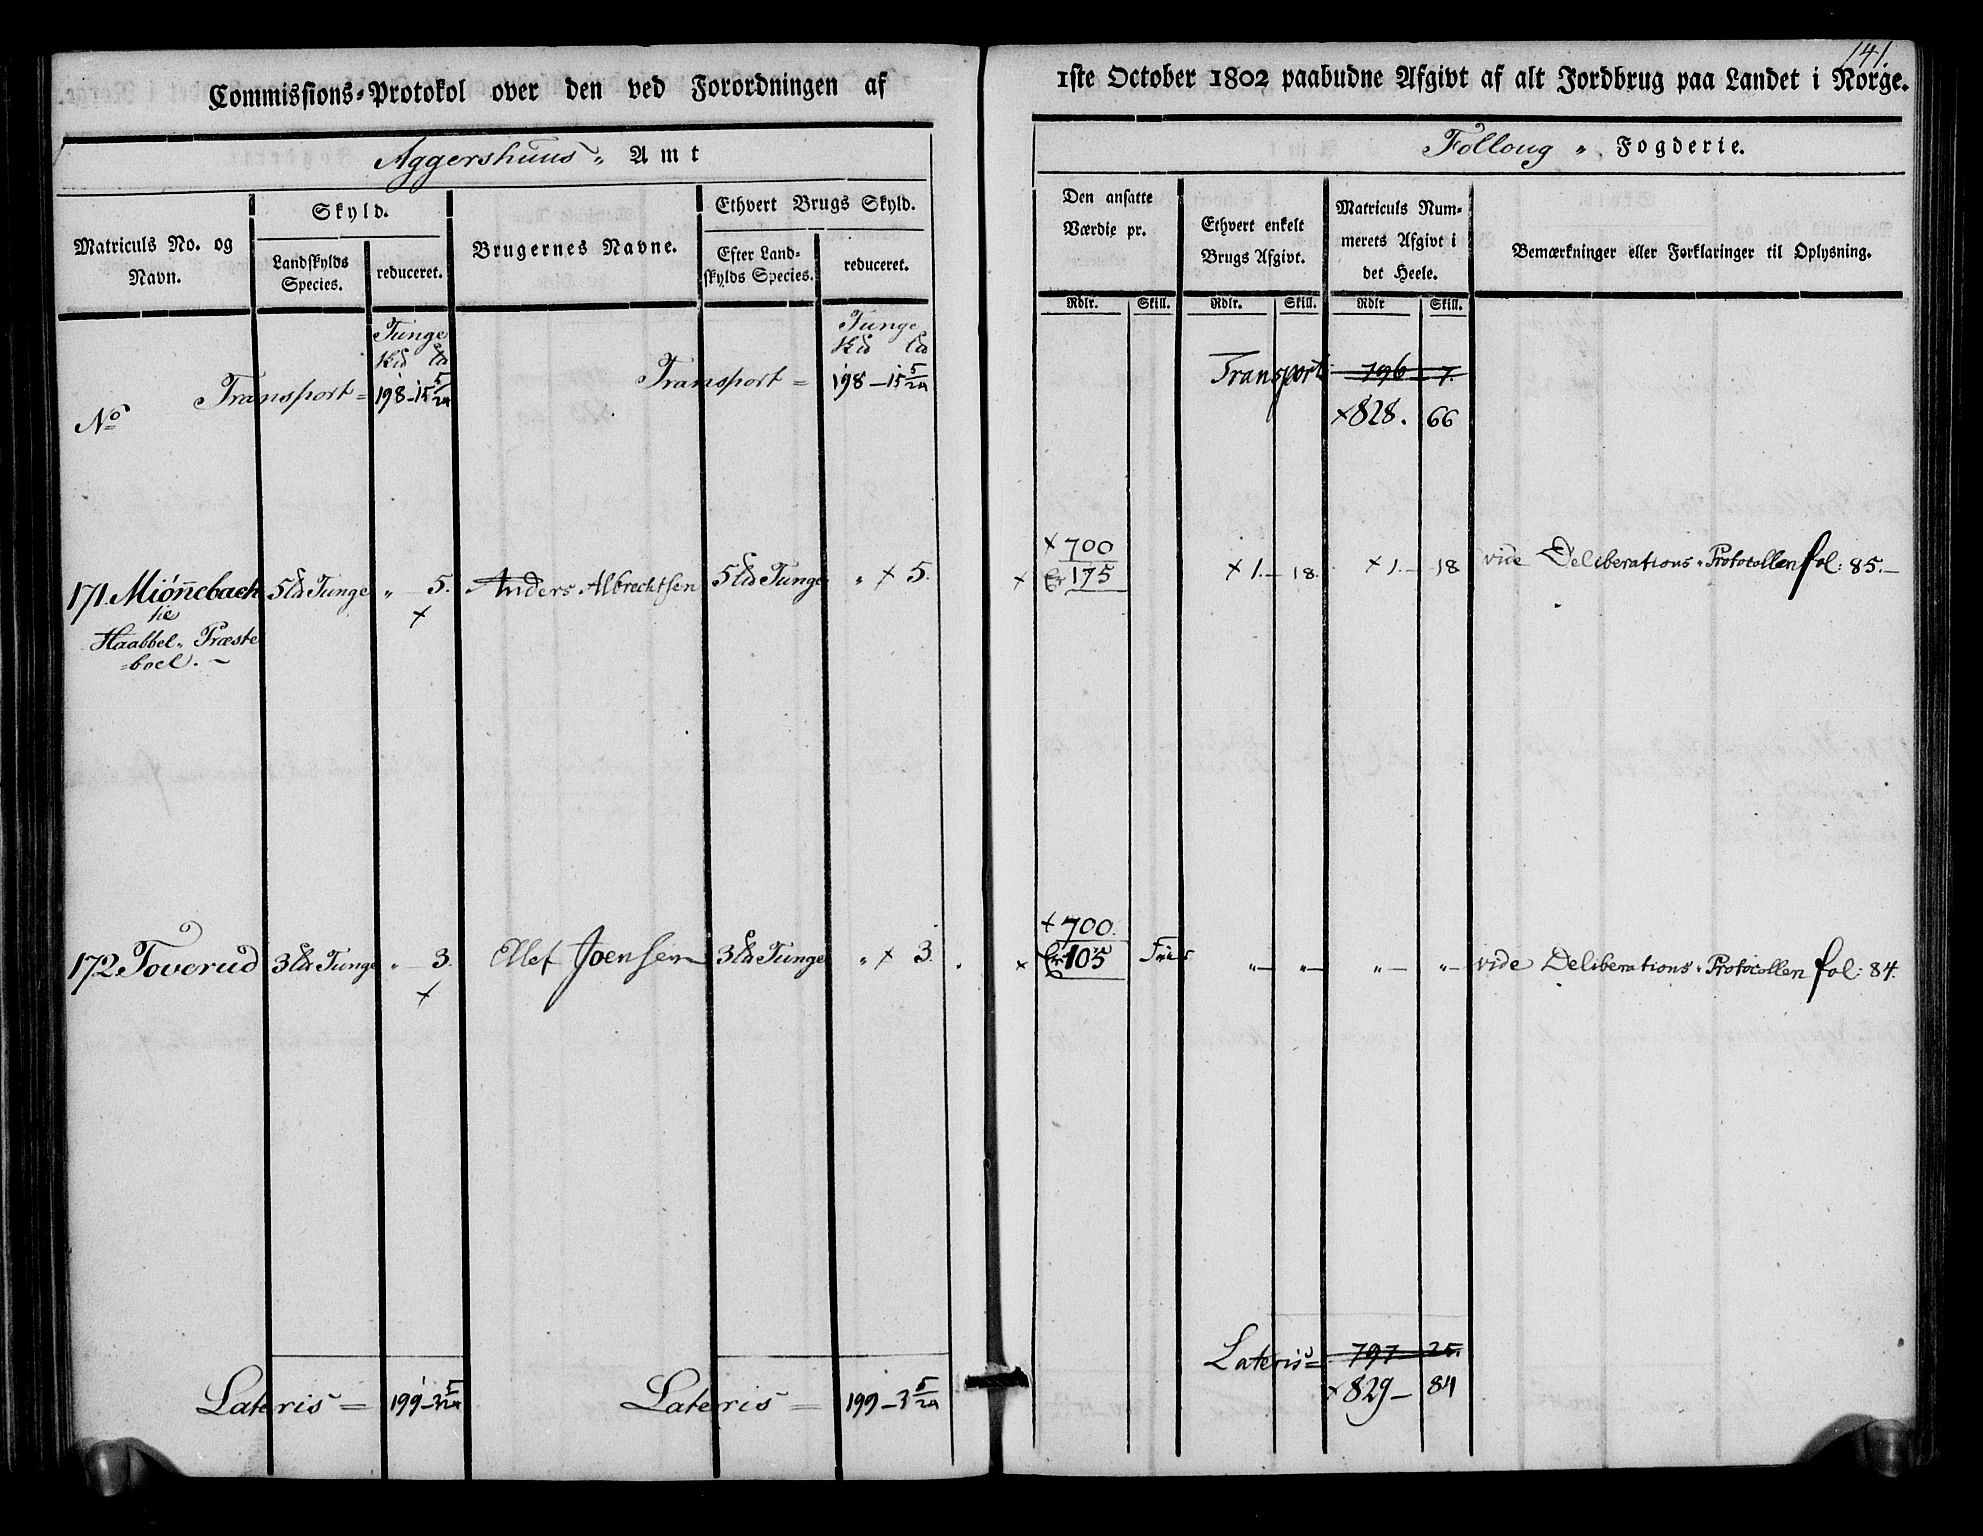 141.
Commissions-Protokol over den ved Forordningen af
1ste October 1802 paabudne Afgivt af alt Jordbrug paa Landet i Norge.
Aggershuus „ Amt
Folloug „ Fogderie.
Matriculs No. og Navn.
Skyld.
Landskylds Species.
reduceret.
Brugernes Navne.
Ethvert Brugs Skyld.
Efter Landskylds Species.
reduceret.
Den ansatte Værdie pr.
Ethvert enkelt Brugs Afgivt.
Matriculs Nummerets Afgivt i det Heele.
Bemærkninger eller Forklaringer til Oplysning.
Rdlr. Skill. Rdlr. Skill. Rdlr Skill.
Tunge Tunge
No
Transport = 198 - 15 5/24 Transport = 198 - 15 5/24 Transport 796 - 7.
×828. 66
×700
171. Miönnebach 5 Tunge „ - 5. Anders Albrechtsen 5 Tunge „ × 5. × Er 175 ×1. - 18. ×1. - 18 vide Deliberations „ Protocollen fol: 85. -
×
Haabbel „ Præste
= boel. -
×700.
172. Toverud 3 Tunge „ - 3. Ellef Joensen 3 Tunge „ × 3. × Er 105 Frie „ - „ - „ - „ - vide Deliberations „ Protocollen fol: 84.
×
Lateris = 199 - 3 5/24 Lateris = 199 - 3 5/24 Lateris = 797 25.
×829 - 84